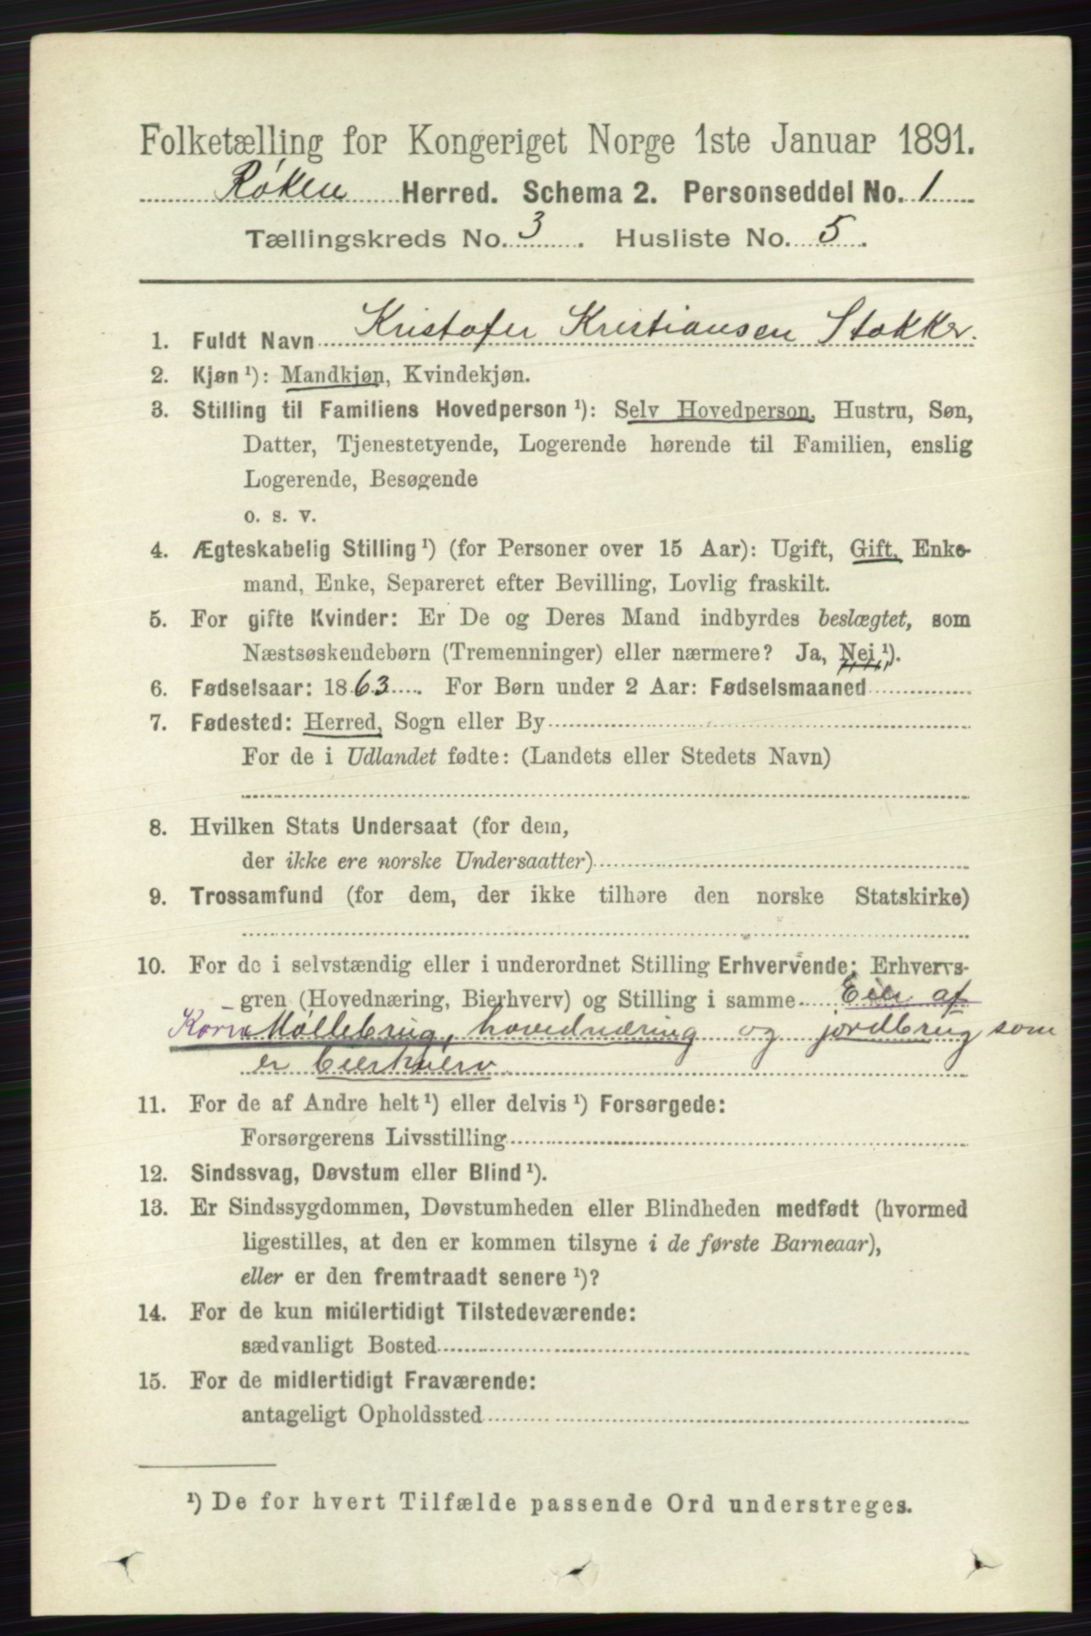 Folketælling for Kongeriget Norge 1ste Januar 1891.
Røken Herred. Schema 2. Personseddel No. 1
Tællingskreds No. 3. Husliste No. 5.
1. Fuldt Navn Kristofer Kristiansen Stokker.
2. Kjøn ¹): Mandkjøn, Kvindekjøn.
3. Stilling til Familiens Hovedperson ¹): Selv Hovedperson, Hustru, Søn,
Datter, Tjenestetyende, Logerende hørende til Familien, enslig
Logerende, Besøgende
o. s. v.
4. Ægteskabelig Stilling ¹) (for Personer over 15 Aar): Ugift, Gift, Enke-
mand, Enke, Separeret efter Bevilling, Lovlig fraskilt.
5. For gifte Kvinder: Er De og Deres Mand indbyrdes beslægtet, som
Næstsøskendebørn (Tremenninger) eller nærmere? Ja, Nei ¹).
6. Fødselsaar: 1863. For Børn under 2 Aar: Fødselsmaaned
7. Fødested: Herred, Sogn eller By
For de i Udlandet fødte: (Landets eller Stedets Navn)
8. Hvilken Stats Undersaat (for dem,
der ikke ere norske Undersaatter)
9. Trossamfund (for dem, der ikke tilhøre den norske Statskirke)
10. For de i selvstændig eller i underordnet Stilling Erhvervende: Erhvervs-
gren (Hovednæring, Bierhverv) og Stilling i samme Eier af
Korn Møllebrug, hovednæring og jordbrug som
er bierhverv
11. For de af Andre helt ¹) eller delvis ¹) Forsørgede:
Forsørgerens Livsstilling
12. Sindssvag, Døvstum eller Blind ¹).
13. Er Sindssygdommen, Døvstumheden eller Blindheden medfødt (hvormed
ligestilles, at den er kommen tilsyne i de første Barneaar),
eller er den fremtraadt senere ¹)?
14. For de kun midlertidigt Tilstedeværende:
sædvanligt Bosted
15. For de midlertidigt Fraværende:
antageligt Opholdssted
¹) De for hvert Tilfælde passende Ord understreges.